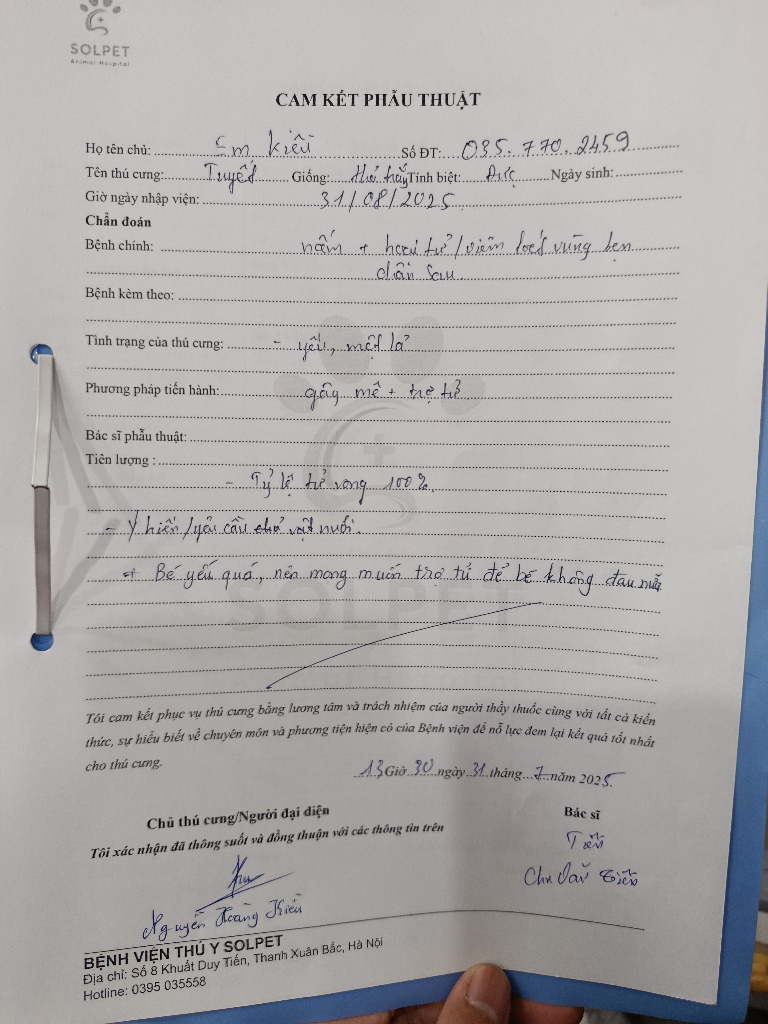 SOLPET
Animal Hospital
CAM KẾT PHẪU THUẬT
Họ tên chủ: Em Kiều Số ĐT: 035.770.2459
Tên thú cưng: Tuyết Giống: Tính biệt: Đực Ngày sinh:
Giờ ngày nhập viện: 31/08/2025
Chẩn đoán
Bệnh chính: nấm + hoại tử/viêm loét vùng bẹn
chân sau
Bệnh kèm theo:
Tình trạng của thú cưng: - yếu, mệt lả
Phương pháp tiến hành: gây mê + trợ tử
Bác sĩ phẫu thuật:
Tiên lượng :
- Tỷ lệ tử vong 100%.
- Ý kiến/yêu cầu chủ vật nuôi.
+ Bé yếu quá, nên mong muốn trợ tử để bé không đau nữa
SOLPET
Tôi cam kết phục vụ thú cưng bằng lương tâm và trách nhiệm của người thầy thuốc cùng với tất cả kiến
thức, sự hiểu biết về chuyên môn và phương tiện hiện có của Bệnh viện để nỗ lực đem lại kết quả tốt nhất
cho thú cưng.
13 Giờ 30 ngày 31 tháng 7 năm 2025
Chủ thú cưng/Người đại diện Bác sĩ
Tôi xác nhận đã thông suốt và đồng thuận với các thông tin trên
Tiến
Chu Văn Tiến
Nguyễn Hoàng Kiều
BỆNH VIỆN THÚ Y SOLPET
Địa chỉ: Số 8 Khuất Duy Tiến, Thanh Xuân Bắc, Hà Nội
Hotline: 0395 035558